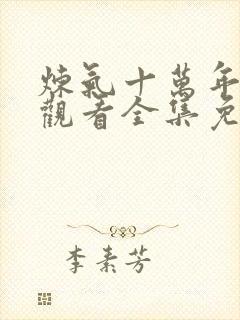 煉氣十萬年
觀看全集免
李素芳